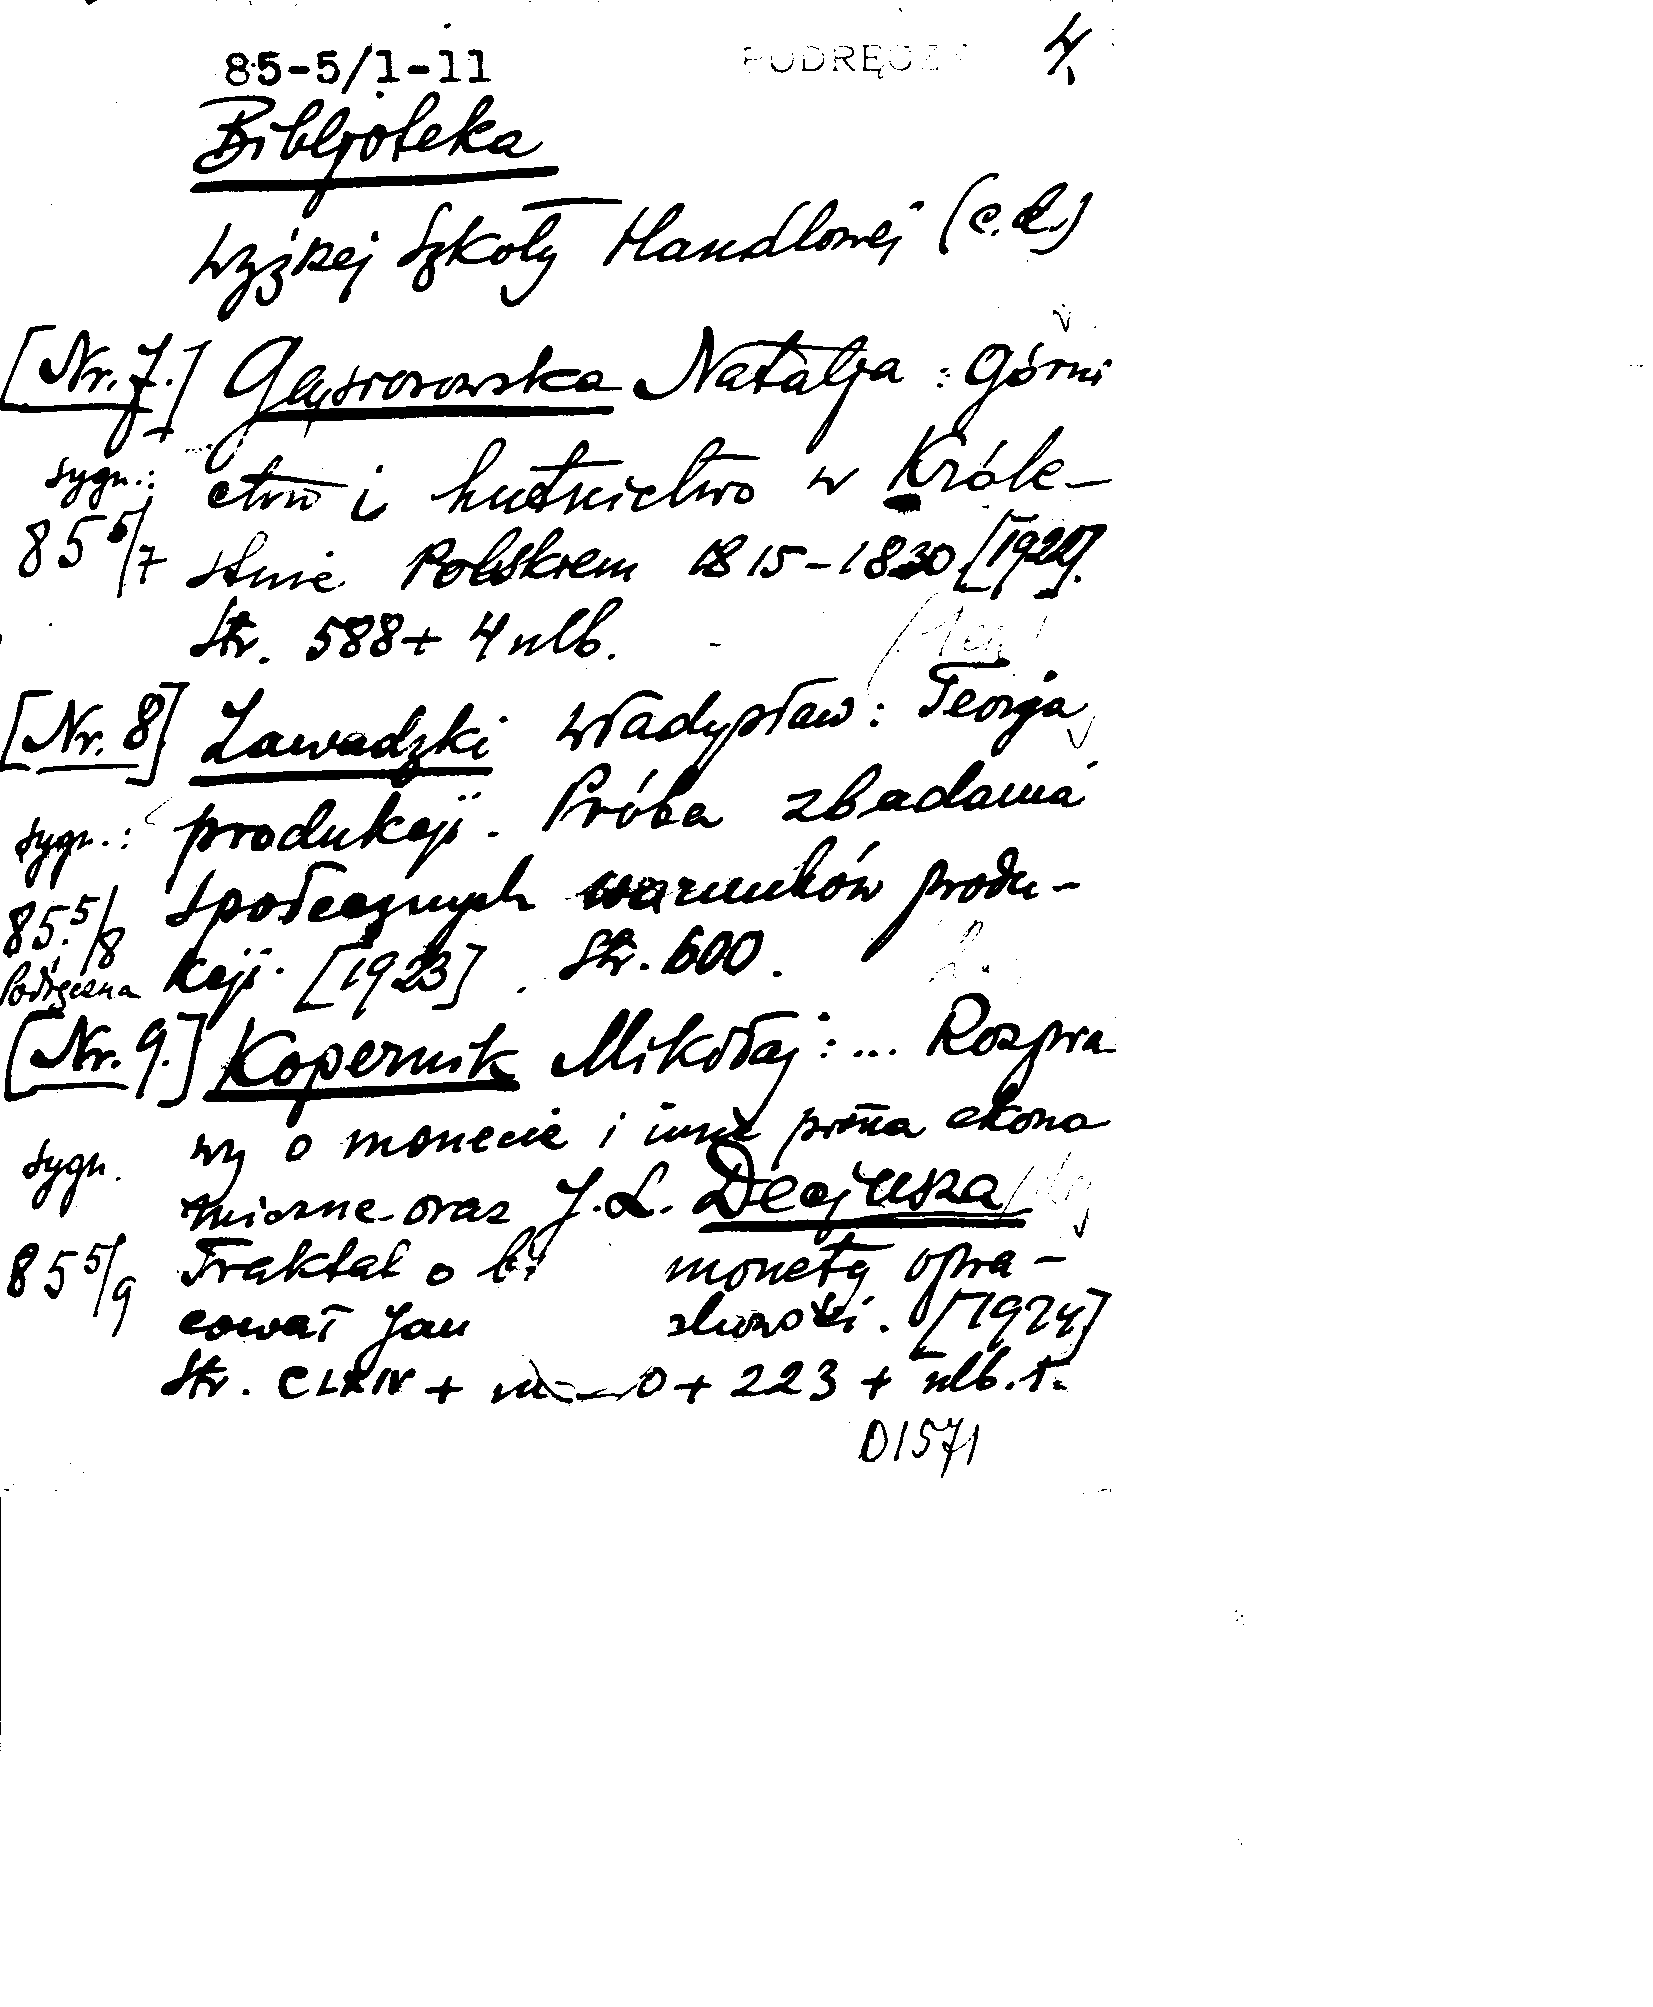 85-5/1-11 PODRĘCZ 4.
Bibljoteka
Wyższej Szkoły Handlowej (c.d.)
[Nr. 7.] Gąsiorowska Natalja: Górni
sygn.: ctwo i hutnictwo w Króle-
85 5/7 stwie Polskiem 1815-1830 [1922].
Str. 588 + 4 nlb.
[Nr. 8] Zawadzki Władysław: Teorja
sygn.: produkcji. Próba zbadania
85.5/8 społecznych warunków produ-
Podręczna kcji. [1923]. Str. 600.
[Nr. 9.] Kopernik Mikołaj: ... Rozpra
sygn. wy o monecie i inne pisma ekono
miczne oraz J. L. Decjusza
85 5/9 Traktat o bi monety opra-
cował Jan [1924]
Str. CLXIV + 0 + 223 + nlb. 1.
D1571